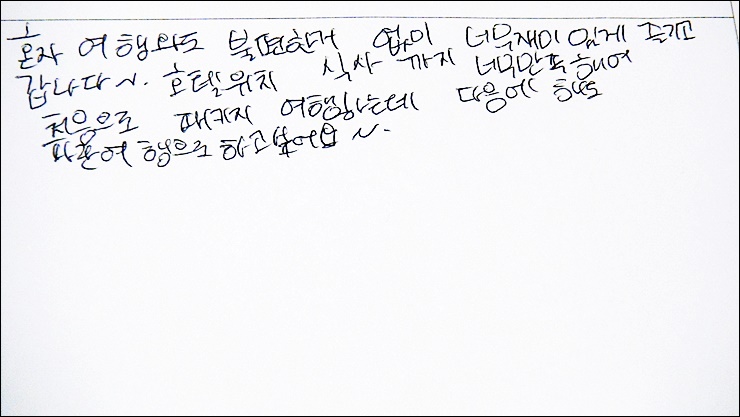 혼자 여행와도 불편한거 없이 너무재미있게 즐기고
갑니다~. 호텔위치 식사 까지 너무만족해여
처음으로 패키지 여행하는데 다음에 해도
파란여행으로 하고싶어요~.